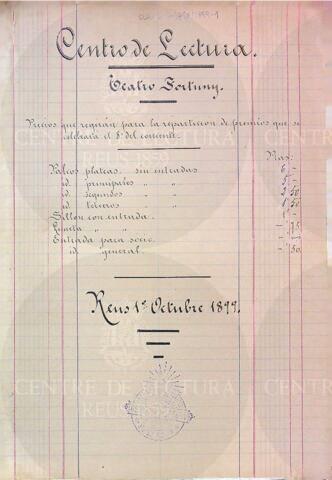 Centro de Lectura.
Teatro Fortuny.
Precios que regirán para la repartición de premios que se
celebrará el 8 del corriente.
Ptas.
Palcos plateas sin entradas
id. principales " "
id. segundos " " 50
id. terceros " " 1'50
Sillon con entrada. 1'-
" " -'75
Entrada para socio
id. general. -'50
Reus 1º Octubre 1899.
CENTRE DE LECTURA
REUS 1859